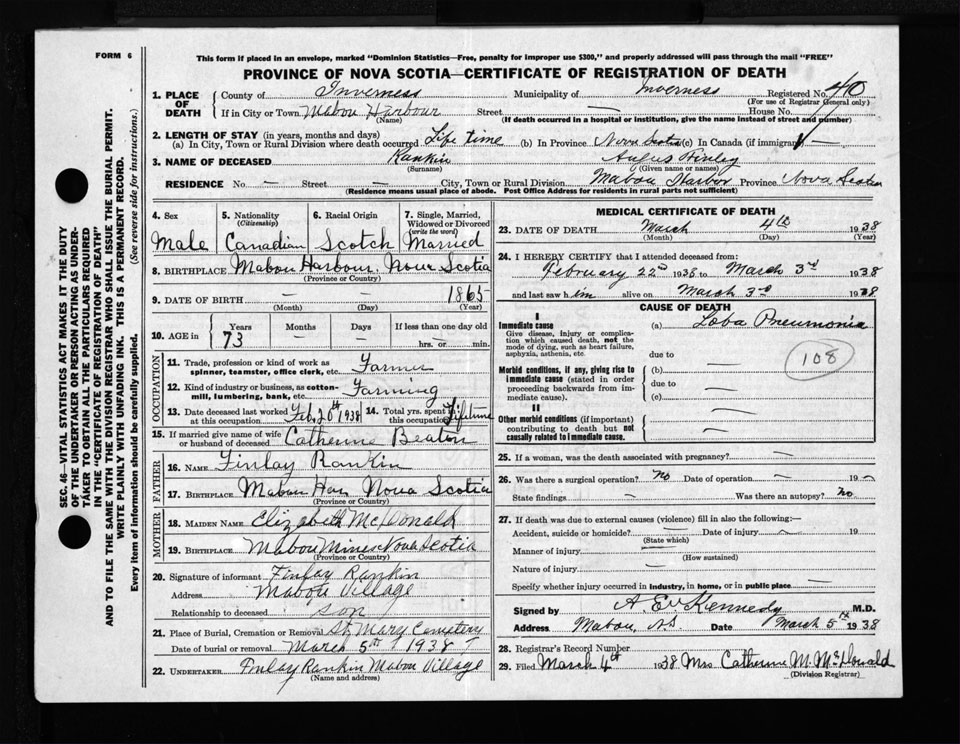 FORM 6
This form if placed in an envelope, marked "Dominion Statistics—Free, penalty for improper use $300," and properly addressed will pass through the mail "FREE"
PROVINCE OF NOVA SCOTIA—CERTIFICATE OF REGISTRATION OF DEATH
SEC. 46—VITAL STATISTICS ACT MAKES IT THE DUTY
OF THE UNDERTAKER OR PERSON ACTING AS UNDER-
TAKER TO OBTAIN ALL THE PARTICULARS REQUIRED
IN THE "CERTIFICATE OF REGISTRATION OF DEATH"
AND TO FILE THE SAME WITH THE DIVISION REGISTRAR WHO SHALL ISSUE THE BURIAL PERMIT.
WRITE PLAINLY WITH UNFADING INK. THIS IS A PERMANENT RECORD.
Every item of information should be carefully supplied. (See reverse side for instructions.)
1. PLACE OF DEATH County of Inverness Municipality of Inverness Registered No. 40
(For use of Registrar General only)
If in City or Town Mabou Harbour Street — House No.
(Name) (If death occurred in a hospital or institution, give the name instead of street and number)
2. LENGTH OF STAY (in years, months and days)
(a) In City, Town or Rural Division where death occurred Life time (b) In Province Nova Scotia (c) In Canada (if immigrant) —
3. NAME OF DECEASED Rankin Angus Finley
(Surname) (Given name or names)
RESIDENCE No. — Street City, Town or Rural Division Mabou Harbor Province Nova Scotia
(Residence means usual place of abode. Post Office Address for residents in rural parts not sufficient)
4. Sex
Male
5. Nationality
(Citizenship)
Canadian
6. Racial Origin
Scotch
7. Single, Married,
Widowed or Divorced
(write the word)
Married
8. BIRTHPLACE Mabou Harbour. Nova Scotia
(Province or Country)
9. DATE OF BIRTH — 1865
(Month) (Day) (Year)
10. AGE in Years Months Days If less than one day old
73 — — hrs. or min.
OCCUPATION
11. Trade, profession or kind of work as
spinner, teamster, office clerk, etc. Farmer
12. Kind of industry or business, as cotton-
mill, lumbering, bank, etc. Farming
13. Date deceased last worked at this occupation Feb. 20th 1938 14. Total yrs. spent in this occupation Lifetime
15. If married give name of wife
or husband of deceased Catherine Beaton
FATHER
16. NAME Finlay Rankin
17. BIRTHPLACE Mabou Har Nova Scotia
(Province or Country)
MOTHER
18. MAIDEN NAME Elizabeth McDonald
19. BIRTHPLACE Mabou Mines Nova Scotia
(Province or Country)
20. Signature of informant Finlay Rankin
Address Mabou Village
Relationship to deceased son
21. Place of Burial, Cremation or Removal St Mary Cemetery
Date of burial or removal March 5th 1938
22. UNDERTAKER Finlay Rankin Mabou Village
(Name and address)
MEDICAL CERTIFICATE OF DEATH
23. DATE OF DEATH March 4th 1938
(Month) (Day) (Year)
24. I HEREBY CERTIFY that I attended deceased from:
February 22nd 1938 to March 3rd 1938
and last saw him alive on March 3rd 1938
CAUSE OF DEATH
I
Immediate cause (a) Loba Pneumonia
Give disease, injury or complica-
tion which caused death, not the
mode of dying, such as heart failure,
asphyxia, asthenia, etc.
due to
108
Morbid conditions, if any, giving rise to
immediate cause (stated in order
proceeding backwards from im-
mediate cause).
(b) —
due to —
(c) —
II
Other morbid conditions (if important)
contributing to death but not
causally related to immediate cause.
—
—
25. If a woman, was the death associated with pregnancy? —
26. Was there a surgical operation? No Date of operation — 19 —
State findings — Was there an autopsy? No
27. If death was due to external causes (violence) fill in also the following:—
Accident, suicide or homicide? — Date of injury — 19
(State which)
Manner of injury —
(How sustained)
Nature of injury —
Specify whether injury occurred in industry, in home, or in public place —
Signed by A. E. Kennedy M.D.
Address Mabou, N.S Date March 5th 1938
28. Registrar's Record Number
29. Filed March 4th 1938 Mrs. Catherine M. McDonald
(Division Registrar)